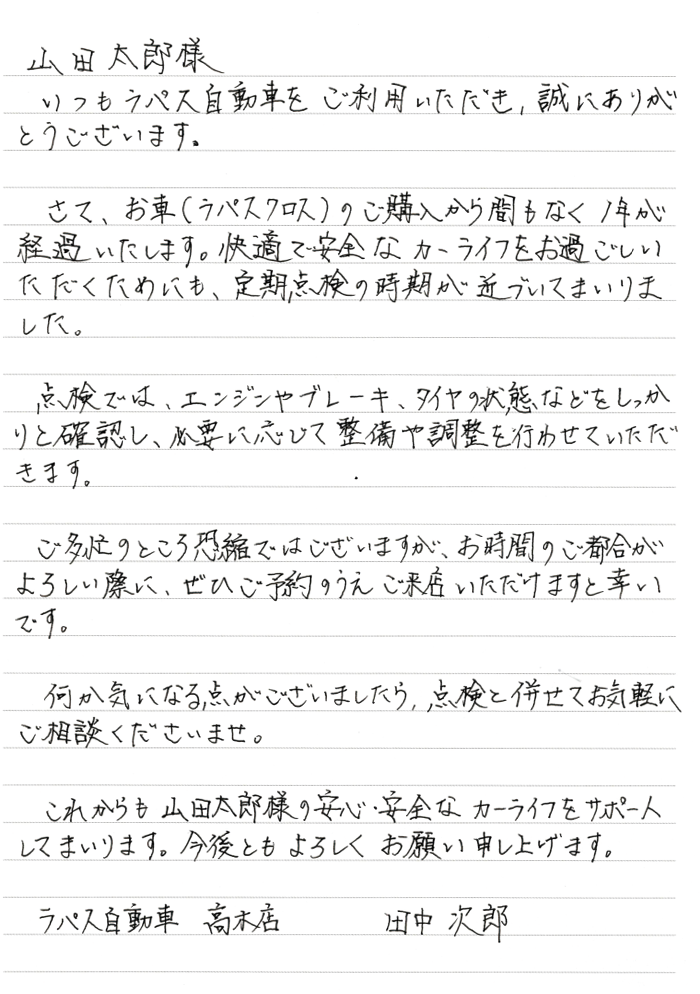 山田太郎様
いつもラパス自動車をご利用いただき,誠にありが
とうございます。
さて、お車(ラパスクロス)のご購入から間もなく1年が
経過いたします。快適で安全なカーライフをお過ごしい
ただくためにも、定期点検の時期が近づいてまいりま
した。
点検では、エンジンやブレーキ、タイヤの状態などをしっか
りと確認し、必要に応じて整備や調整を行わせていただ
きます。
ご多忙のところ恐縮ではございますが、お時間のご都合が
よろしい際に、ぜひご予約のうえご来店いただけますと幸い
です。
何か気になる点がございましたら,点検と併せてお気軽に
ご相談くださいませ。
これからも山田太郎様の安心・安全なカーライフをサポート
してまいります。今後ともよろしくお願い申し上げます。
ラパス自動車 高木店 田中次郎